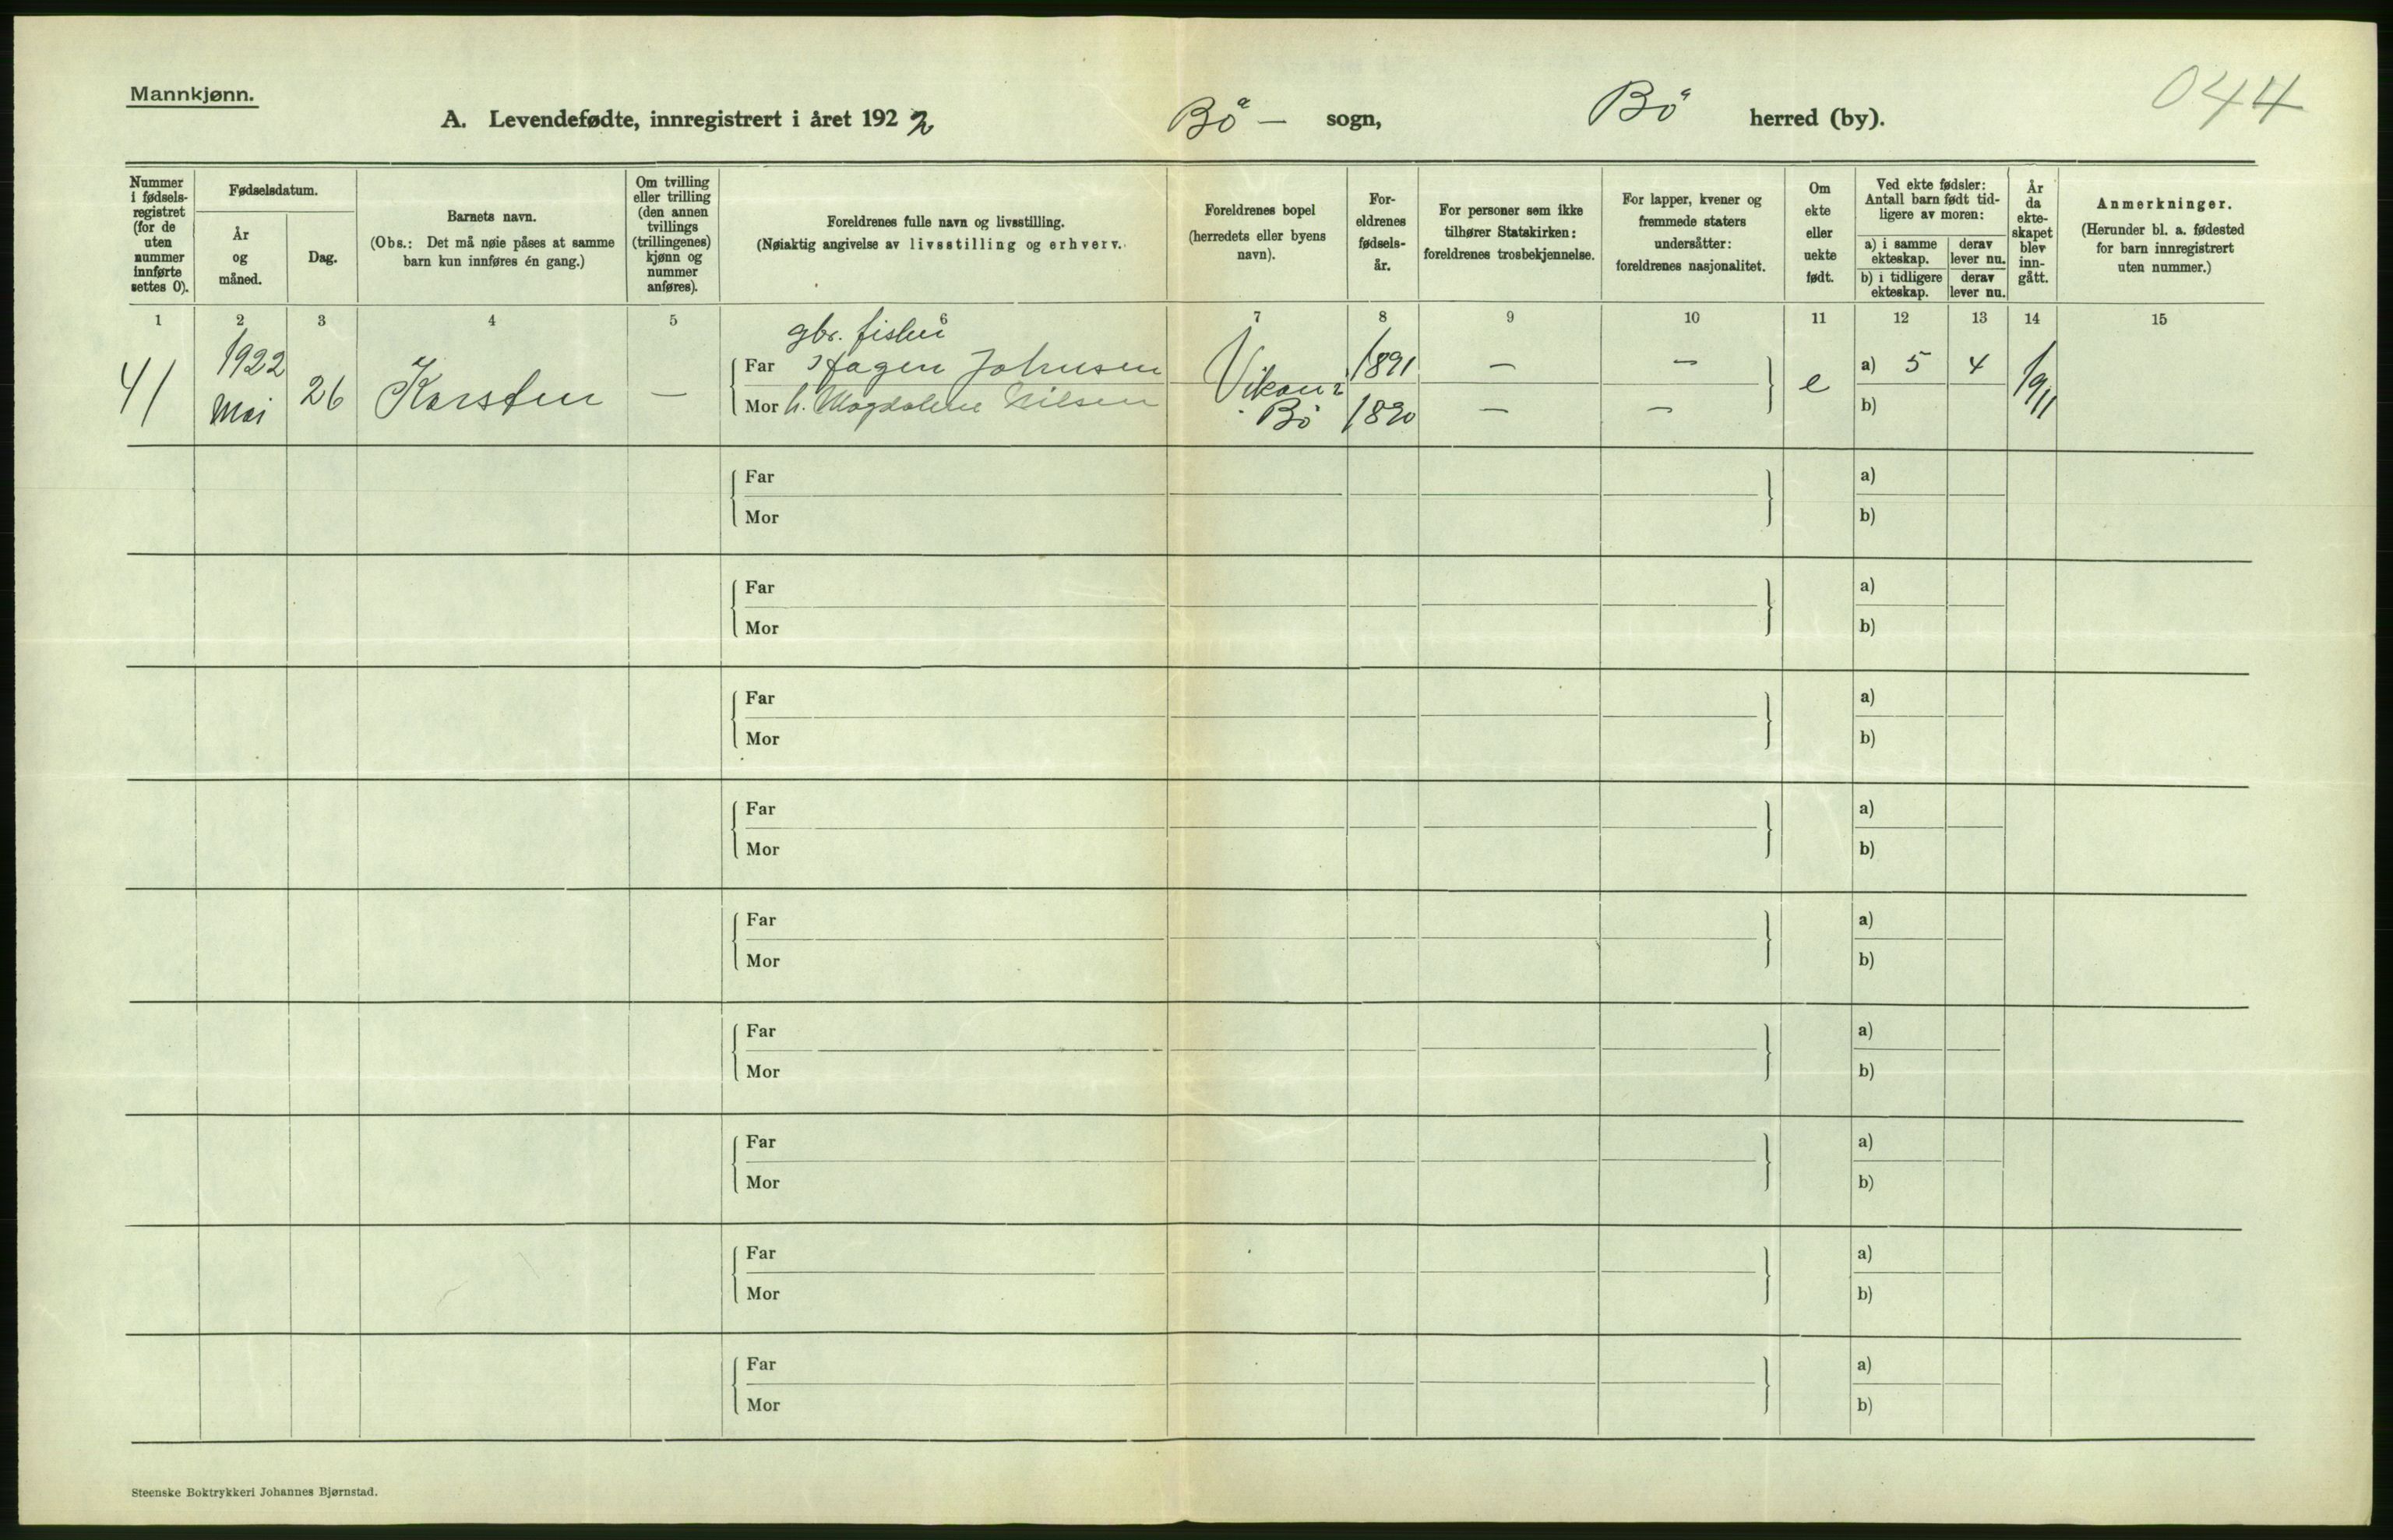 Mannkjønn.
044
A. Levendefødte, innregistrert i året 1922 Bö — sogn, Bö herred (by).
Nummer i fødsels-registret (for de uten nummer innførte settes 0).
Fødselsdatum.
År og måned.
Dag.
Barnets navn.
(Obs.: Det må nøie påses at samme barn kun innføres én gang.)
Om tvilling eller trilling (den annen tvillings (trillingenes) kjønn og nummer anføres).
Foreldrenes fulle navn og livsstilling.
(Nøiaktig angivelse av livsstilling og erhverv.)
Foreldrenes bopel (herredets eller byens navn).
For-eldrenes fødsels-år.
For personer som ikke tilhører Statskirken: foreldrenes trosbekjennelse.
For lapper, kvener og fremmede staters undersåtter: foreldrenes nasjonalitet.
Om ekte eller uekte født.
Ved ekte fødsler: Antall barn født tid-ligere av moren:
a) i samme ekteskap.
derav lever nu.
b) i tidligere ekteskap.
derav lever nu.
År da ekte-skapet blev inn-gått.
Anmerkninger.
(Herunder bl. a. fødested for barn innregistrert uten nummer.)
1 2 3 4 5 6 7 8 9 10 11 12 13 14 15
gbr. fisker
41 1922 Mai 26 Karsten —
Far Hagen Johnsen Vikan i 1891 — — e a) 5 4 1911
Mor h. Magdalene Nilsen Bö 1890 — — b)
Far a)
Mor b)
Far a)
Mor b)
Far a)
Mor b)
Far a)
Mor b)
Far a)
Mor b)
Far a)
Mor b)
Far a)
Mor b)
Far a)
Mor b)
Far a)
Mor b)
Steenske Boktrykkeri Johannes Bjørnstad.